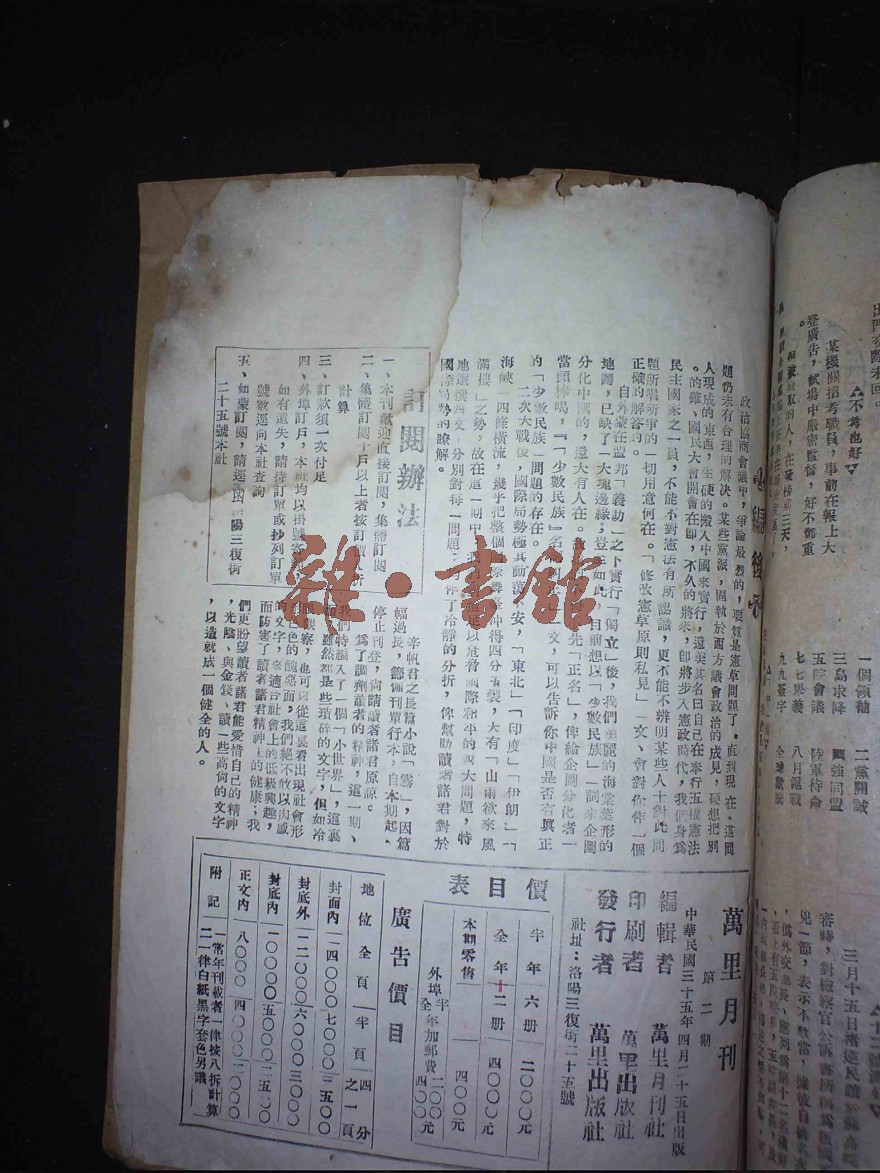 編後
政治協商會議中,爭論最烈的,要算是憲草問題了。直到現在,這問
題仍未有合理的解決。某些黨派,固執於西方議會政治的成見,硬想把別
人現成的東西,生硬的搬入中國來實行,還美其名曰自己在奉行五權憲法
的雖、國民大會開會在卽,不久的將來,卽將步入憲政時代,我們身為
民主國家之一員,不能不對憲法有所認識,更不能不辨明某些人士對此問
題所唱所爭的一切用意何在。「修改憲草原則私見」一文、會對你作一個
正確的解答的。
自外蒙在盟邦「義助」之下實行「獨立」後,我們美麗的海棠葉形的
地圖,已缺了一大塊邊緣;豈
如此,目前想以「少數民族」一詞來企圖
分化中國的,還大有人在。
先「正名」,俾給企圖分化者一
當頭棒喝,「「少數民族」名
一文,可以告訴你中國是否有眞正
的「少數民族」問題的存在。
二次大戰後,國際局勢極其動盪不安,「東北」「印度」「伊朗」「
海峽」四條橫流,幾乎把整個
沖得四分五裂,大有「山雨欲來風
滿樓」之勢,故在這一期中
足以危脅國際和平的四大問題,特
地選擇四文,分別對每一問題,
作了冷靜的分析,俾幫助讀者諸君對於
國際局勢的瞭解。
訂閱辦法
一、本刊歡迎直接訂閱,集體訂閱
二、集體訂閱十戶以上者按訂價
折
計算
三、訂款須一次付足
四、外埠訂戶,本社均以掛號寄
如有遺失,請持訂單或抄列訂單
號數逕向本社查詢
五、如蒙訂閱,請逕函洛陽三復街
二十五號本社
辛帆君之長篇小說「霧」,因篇
幅過長,籌備刊單行本,自本期起,
停止刊登,尚請讀者諸君原諒。
為了調劑讀者的精神,這一期、
我們特編入了一個「小世界」,這裏
面雖然都是些瑣碎的文字,但如冷
眼觀察,也可以從這裏看出現社會形
形色色的醜惡面,我們絕不敢以肉感
的文字,來適合社會上的低級興趣,
而防害了讀者諸君精神上的健康;我
們更盼望讀者諸君能愛惜自己的精神
,光陰、與金錢、讀一些高尚的文字
,以造就成一個健全的人。
萬里月刊
第二期
中華民國三十五年四月二十五日出版
編輯者 萬里月刊社
印刷者 萬里出版社
發行者 萬里出版社
社址:洛陽三復街二十五號
價目表
半年六册 二〇〇〇元
全年十二册 四〇〇〇元
本期零售 四〇〇元
外埠半年加郵費二〇〇元
全年加郵費四〇〇元
廣告價目
地位 全頁 半頁 四分之一頁
封面內 一四〇〇〇 七〇〇〇 三五〇〇
封底外 一二〇〇〇 六〇〇〇 三〇〇〇
封底內 一〇〇〇〇 五〇〇〇 二五〇〇
正文內 八〇〇〇 四〇〇〇 二〇〇〇
附記 一常年刊載者一律按八折計算
二一律白紙黑字套色另議
出門交際未回。
不考也好
某機關招考職員,事前在報上大
登廣告,試場中嚴密監督,好不鄭重
。
一個領袖 二黨開誠
三島求降 四強同盟
五院會議 陸軍待命
七七興義 八月滬戰
九九簽字 全球歡騰
雜·書館